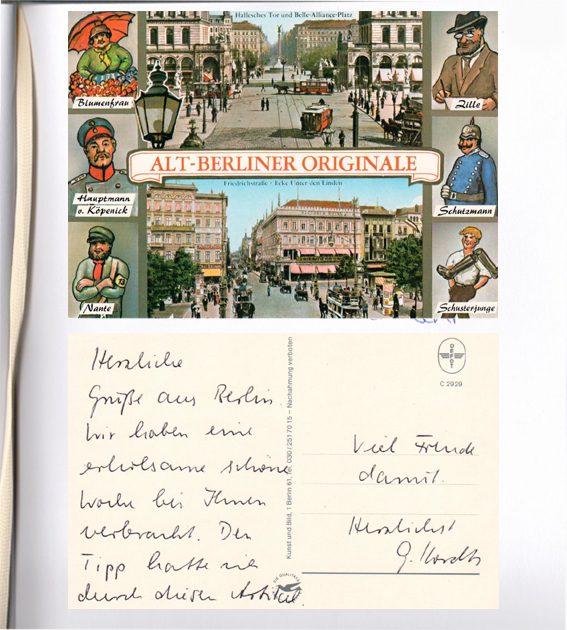 Hallesches Tor und Belle-Alliance-Platz
Blumenfrau
Zille
ALT-BERLINER ORIGINALE
Hauptmann
v. Köpenick
Friedrichstraße · Ecke Unter den Linden
Schutzmann
Nante
Schusterjunge
Herzliche
Grüße aus Berlin
Wir haben eine
erholsame schöne
Woche bei Ihnen
verbracht. Den
Tipp hatte ich
durch diesen Artikel.
Kunst und Bild, 1 Berlin 61, Tel. 030 / 251 70 15 – Nachahmung verboten
C 2929
Viel Freude
damit.
Herzlichst
G.